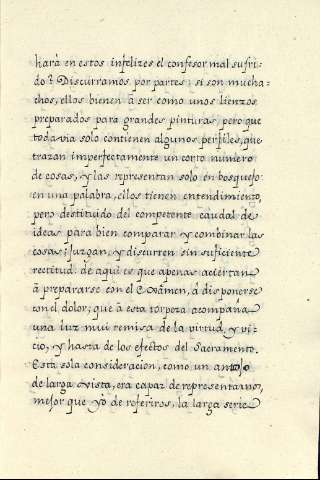 harà en estos infelizes el confesor mal sufri-
do? Discurramos por partes: si son mucha-
chos, ellos bienen à ser como unos lienzos
preparados para grandes pinturas pero que
toda via solo contienen algunos perfiles, que
trazan imperfectamente un corto numero
de cosas, y las representan solo en bosquejo:
en una palabra, ellos tienen entendimiento,
pero destituido del competente caudal de
ideas para bien comparar y combinar las
cosas; Juzgan, y discurren sin suficiente
rectitud. de aqui es que apenas aciertan
à prepararse con el Exâmen, à disponerse
con el dolor; que à esta torpeza acompaña
una luz mui remisa de la virtud, y vi-
cio, y hasta de los efectos del Sacramento.
Esta sola consideracion, como un antojo
de larga vista, era capaz de representaros,
mejor que yò de referiros, la larga serie